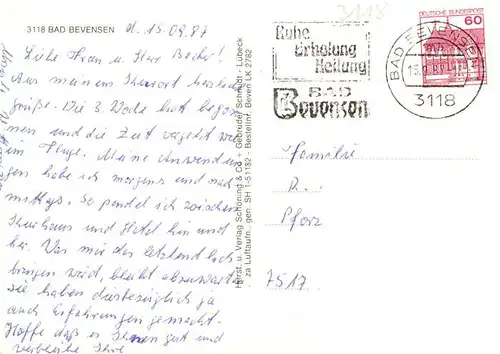 3118 BAD BEVENSEN d. 15.09.87
Liebe Frau u. Herr Becker!
Aus meinem Kurort herzliche
Grüße. Die 3. Woche hat begon
nen und die Zeit vergeht wie
im Fluge. Meine Anwendun
gen habe ich morgens und nach
mittags. So pendel ich zwischen
Kurhaus und Hotel hin und
her. Was mir das letztend lich
bringen wird, bleibt abzuwarten
Sie haben diesbezüglich ja
auch Erfahrungen gemacht.
Hoffe daß es Ihnen gut und
verbleibe Ihre
Herst. u. Verlag Schöning & Co + Gebrüder Schmidt · Lübeck
za Luftaufn.: gen. SH 1-51132 - Bestellnr. Beven LK 2762
3118
Ruhe
Erholung
Heilung
BAD
Bevensen
DEUTSCHE BUNDESPOST
60
BAD BEVENSEN
3118
Familie
R.
Pforz
7517